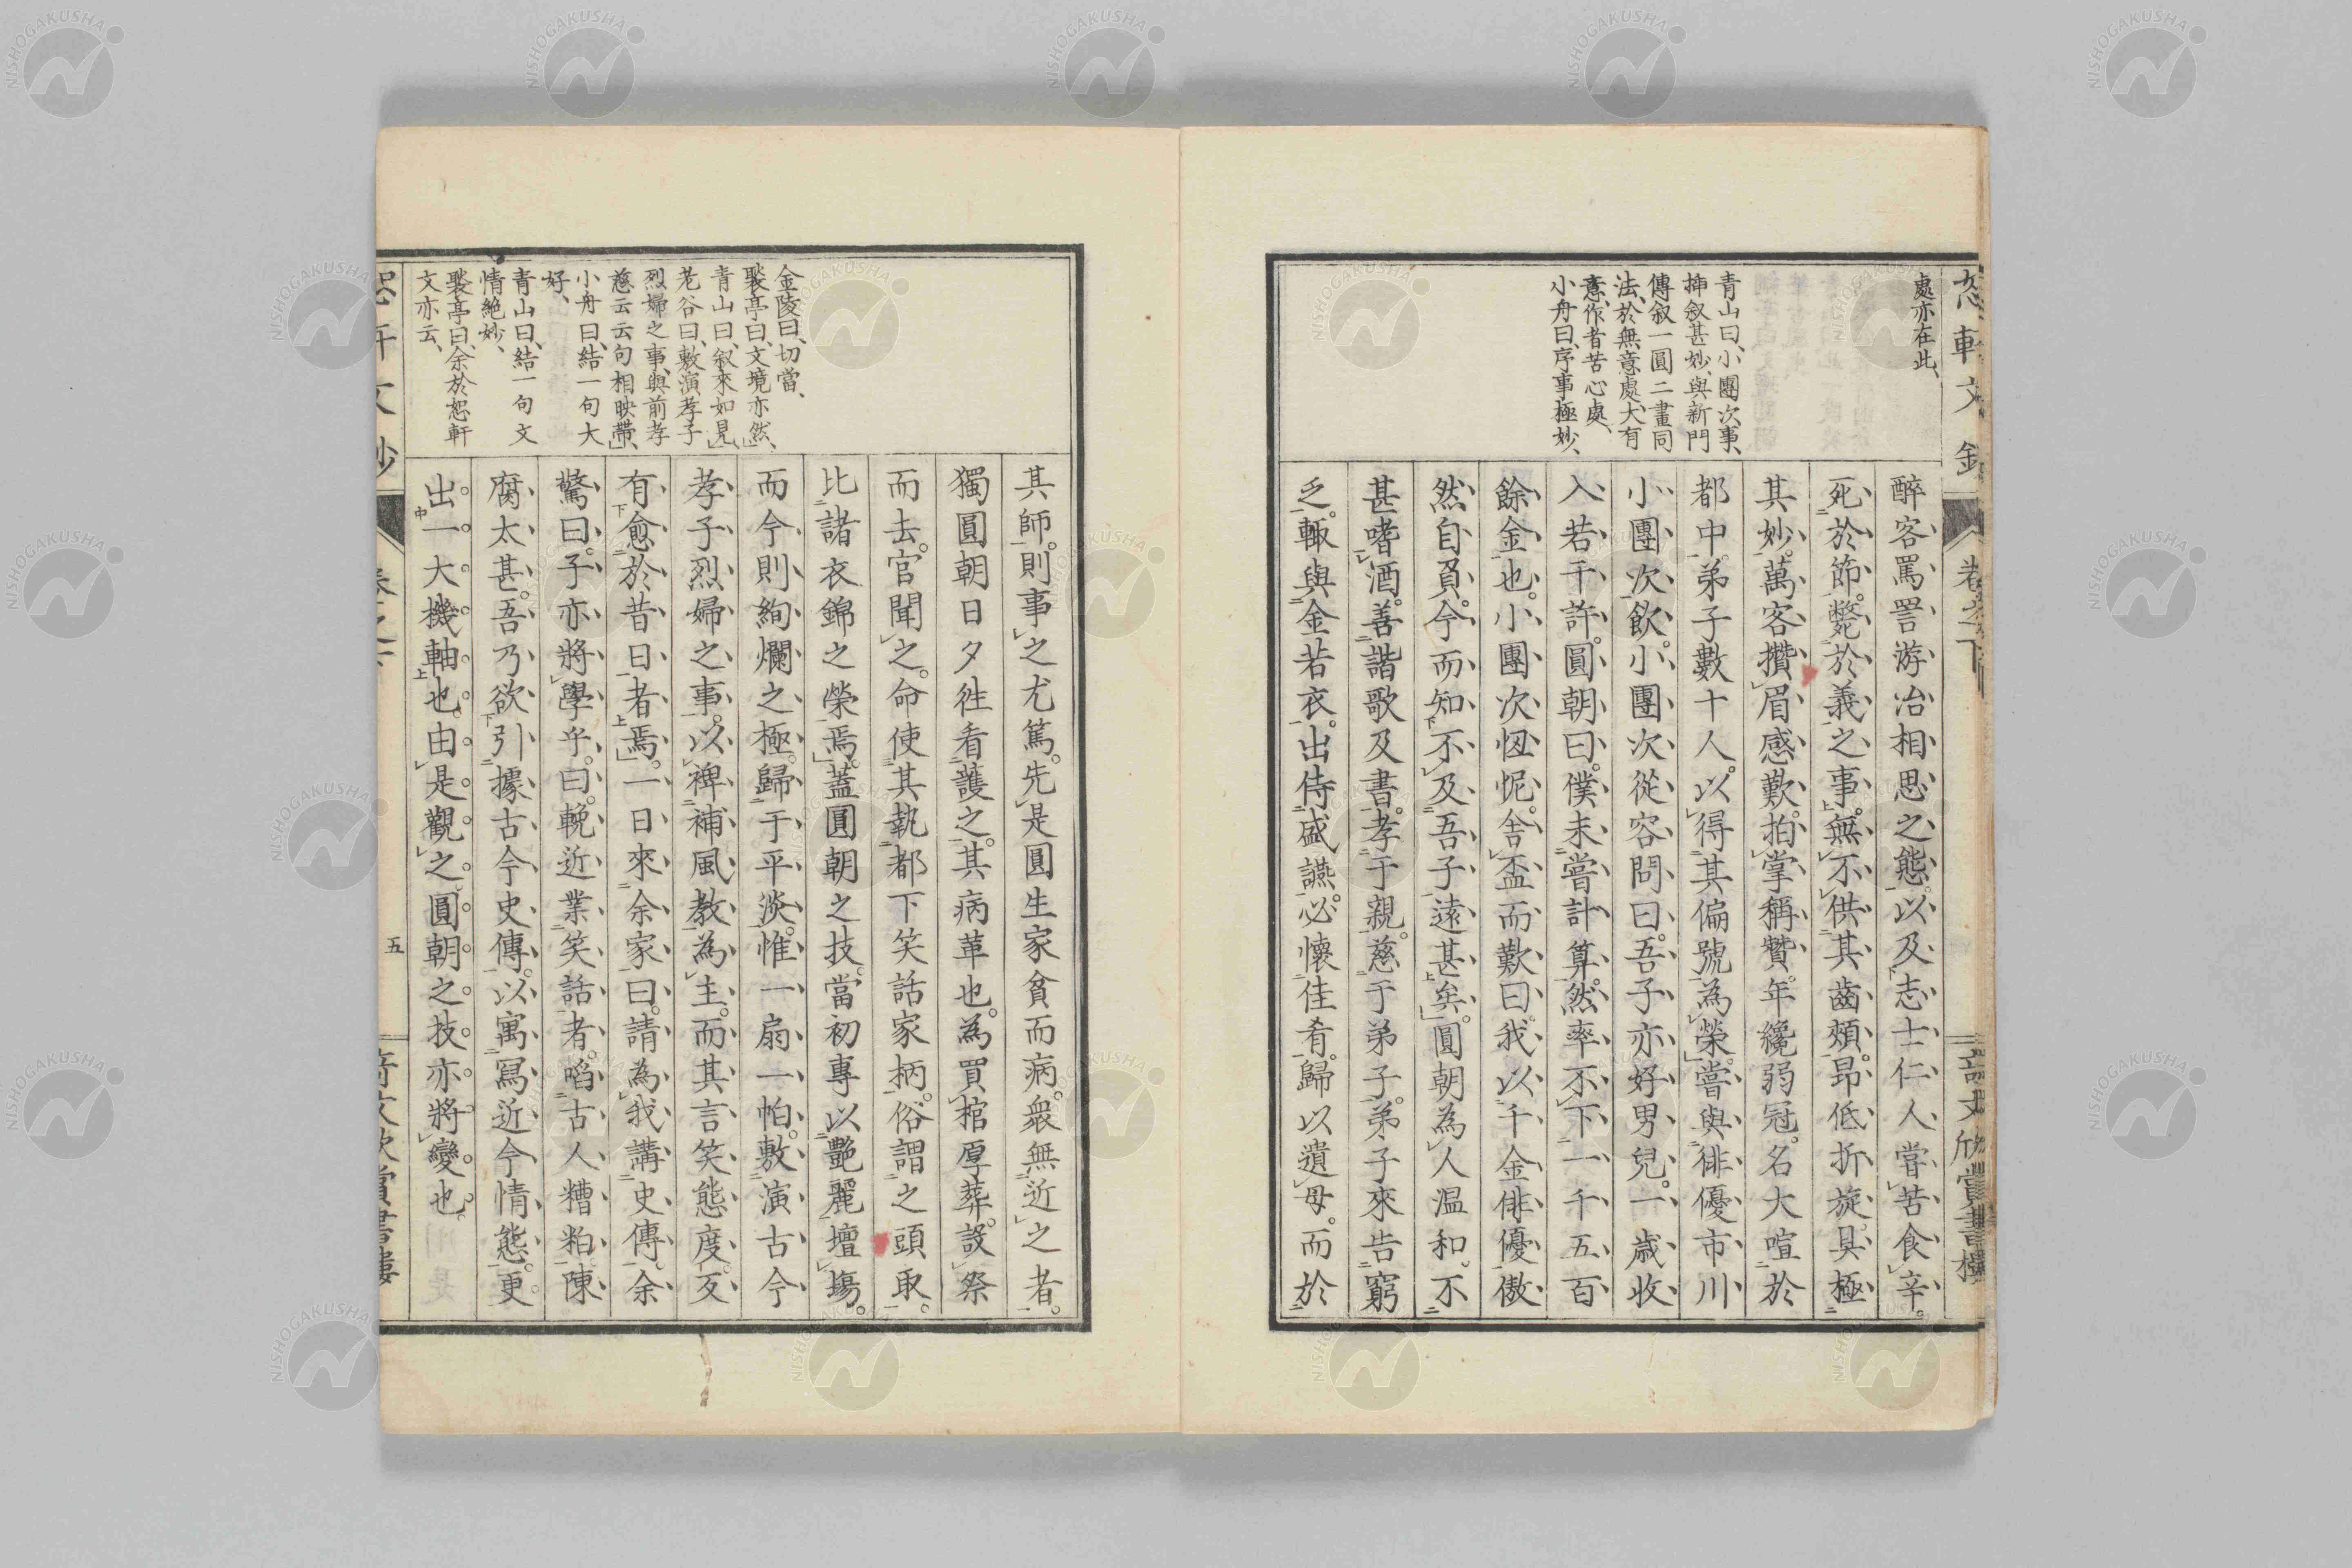 恕軒文鈔
卷之下
奇文欣賞書樓
處亦在此、
青山曰、小團次事、
揷叙甚妙、與新門
傳叙一圓二畫同
法、於無意處、大有
意、作者苦心處、
小舟曰、序事極妙、
醉客罵詈游冶相思之態。以及志士仁人嘗苦食辛。
死於節。斃於義之事。無不供其齒頰。昂低折旋。具極
其妙。萬客攢眉感歎。拍掌稱贊。年纔弱冠。名大喧於
都中。弟子數十人。以得其偏號為榮。嘗與俳優市川
小團次飲。小團次從容問曰。吾子亦好男兒。一歲收
入若干許。圓朝曰。僕未嘗計算。然率不下一千五百
餘金也。小團次忸怩。舍盃而歎曰。我以千金俳優傲
然自負。今而知不及吾子遠甚矣。圓朝為人温和。不
甚嗜酒。善諧歌及書。孝于親。慈于弟子。弟子來告窮
乏。輒與金若衣。出侍盛讌。必懷佳肴。歸以遺母。而於
金陵曰、切當、
裴亭曰、文境亦然、
青山曰、叙來如見、
老谷曰、敷演孝子
烈婦之事、與前孝
慈云云句相映帶、
小舟曰、結一句大
好、
青山曰、結一句文
情絶妙、
裴亭曰、余於恕軒
文亦云、
其師。則事之尤篤。先是圓生家貧而病。衆無近之者。
獨圓朝日夕徃看護之。其病革也。為買棺厚葬。設祭
而去。官聞之。命使其執都下笑話家柄。俗謂之頭取。
比諸衣錦之榮焉。蓋圓朝之技。當初專以艷麗壇場。
而今則絢爛之極。歸于平淡。惟一扇一帕。敷演古今
孝子烈婦之事。以裨補風教為主。而其言笑態度。反
有愈於昔日者焉。一日來余家曰。請為我講史傳。余
驚曰。子亦將學乎。曰。輓近業笑話者。啗古人糟粕。陳
腐太甚。吾乃欲引據古今史傳。以寓寫近今情態。更
出一大機軸也。由是觀之。圓朝之技亦將變也。
恕軒文鈔
卷之下
五
奇文欣賞書樓